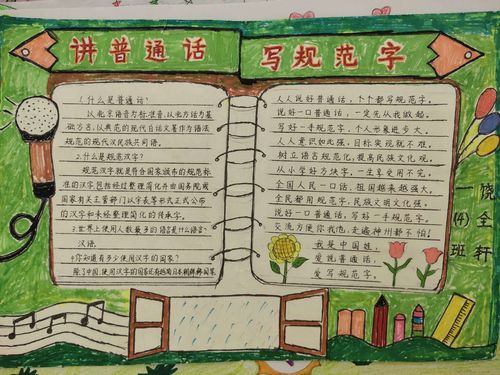 讲普通话
写规范字
1.什么是普通话?
以北京语音为标准音,以北方话为基
础方言,以典范的现代白话文著作为语法
规范的现代汉民族共同语。
2.什么是规范汉字?
规范汉字就是符合国家规范的规范标
准的汉字,包括经过整理简化并由国务院或
国家有关主管部门以字表等形式正式公布
的汉字和未经整理简化的传承字。
3.世界上使用人数最多的语言是什么语言?
汉语。
4.你知道有多少使用汉字的国家?
除了中国,使用汉字的国家还有越南日本朝鲜韩国等
人人说好普通话,个个都写规范字。
说好一口普通话,一定先从我做起。
写好一手规范字,个人形象进步大。
人人意识如此强,目标实现就不难。
树立语言规范化,提高民族文化观。
从小学好方块字,一生享受用不完。
全国人民一口话,祖国越来越强大。
全民都用规范字,民族文明文化强。
说好一口普通话,写好一手规范字。
交流方便你我他,走遍神州都不怕!
我是中国娃,
爱说普通话,
爱写规范字。
一(4)班
饶全轩